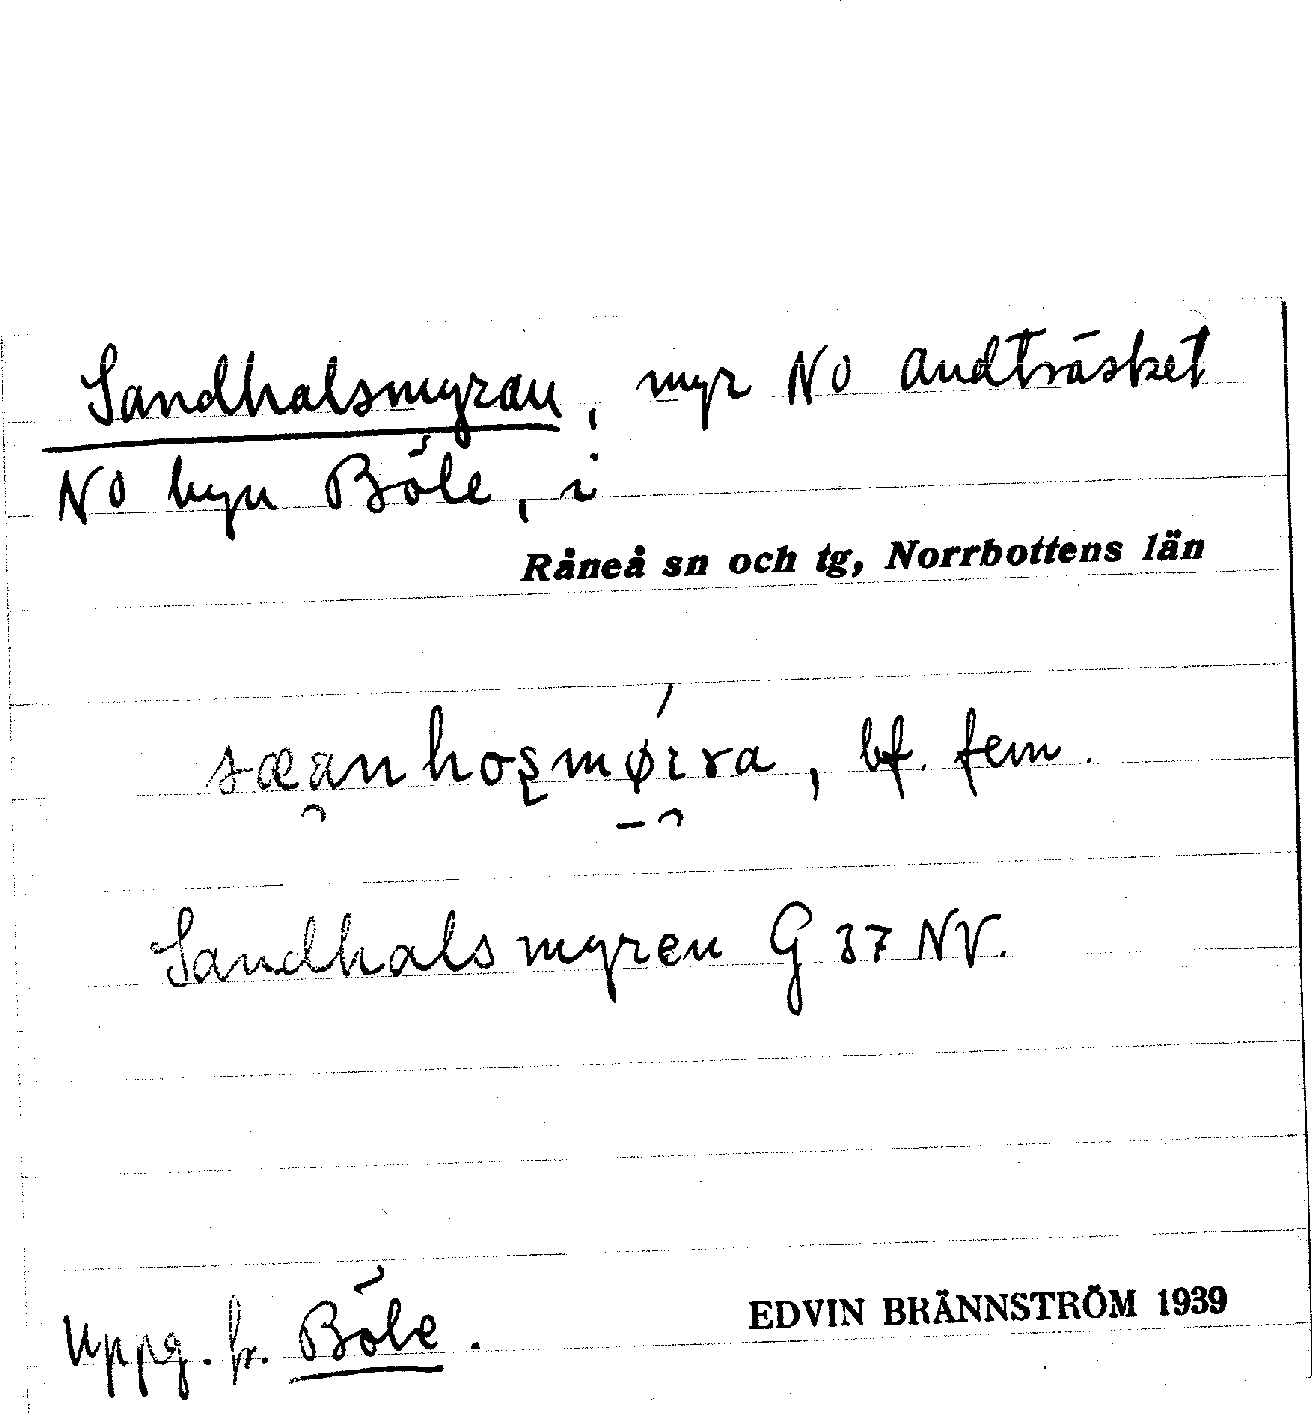 Sandhalsmyran, myr NO Andträsket
NO byn Böle, i
Råneå sn och tg, Norrbottens län
bf. fem.
Sandhalsmyren G 37 NV.
Uppg. fr. Böle.
EDVIN BRÄNNSTRÖM 1939